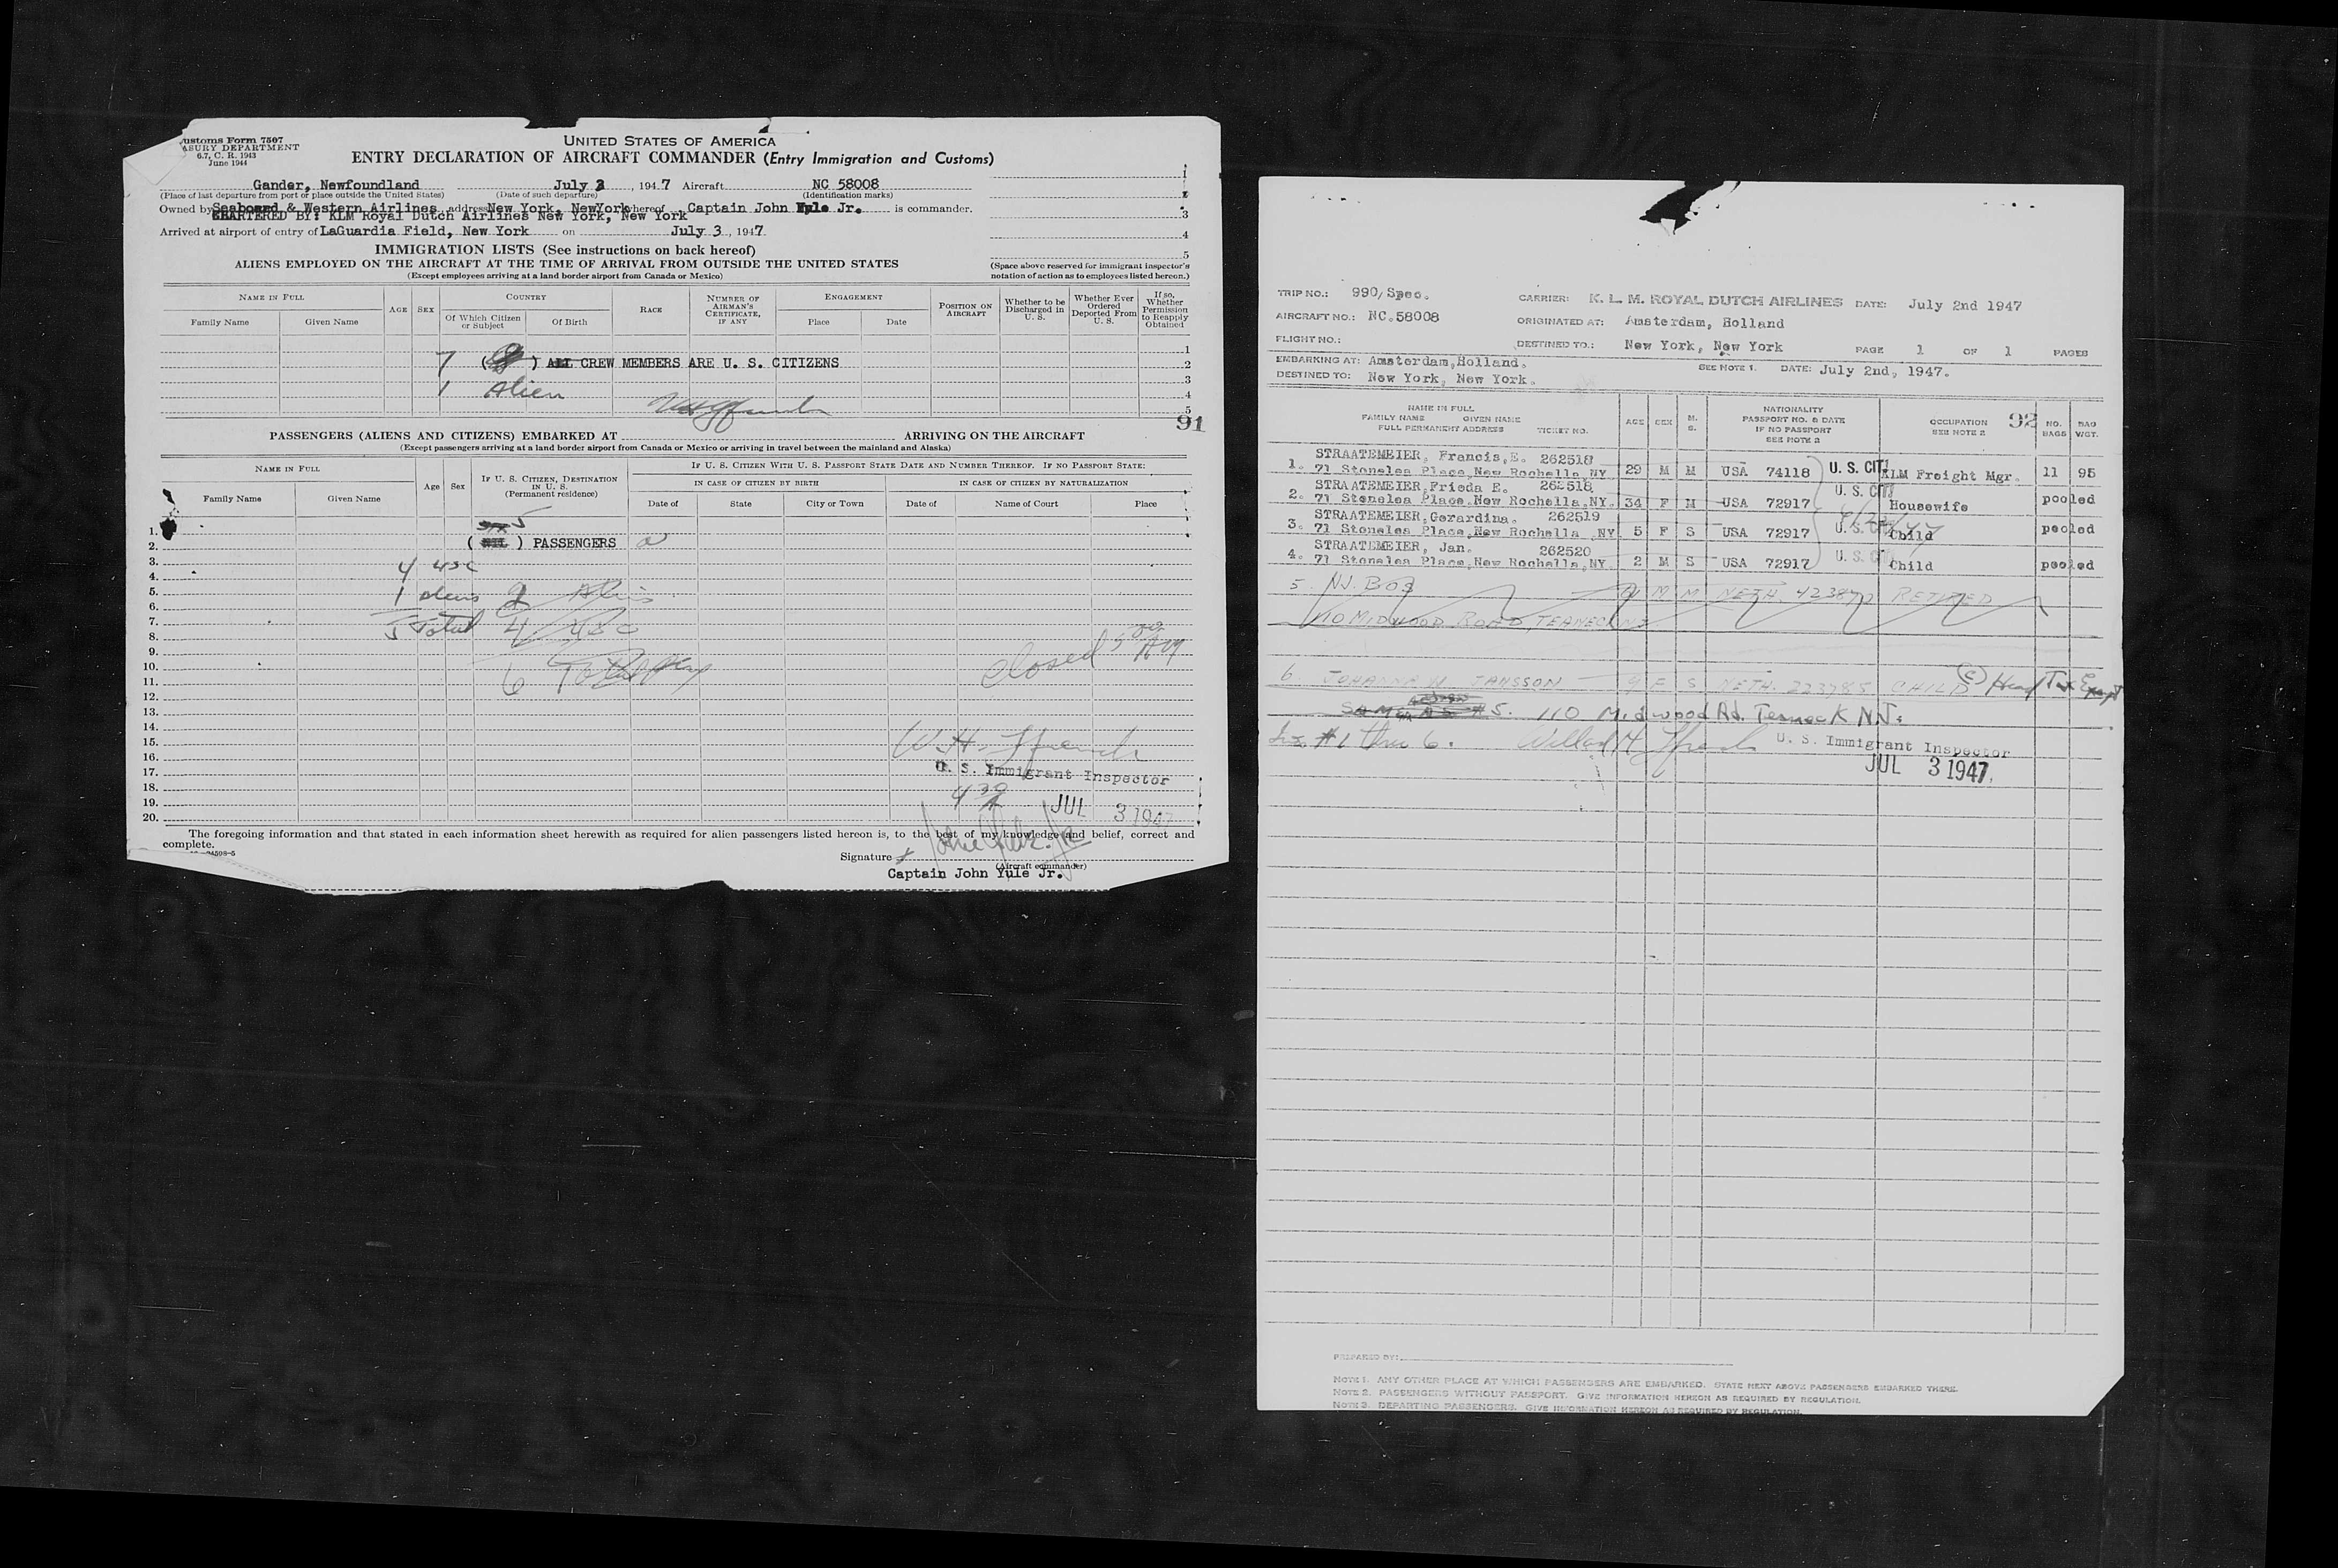 ustoms Form 7507
ASURY DEPARTMENT
6.7, C. R. 1943
June 1944
UNITED STATES OF AMERICA
ENTRY DECLARATION OF AIRCRAFT COMMANDER (Entry Immigration and Customs)
Gander, Newfoundland July 3, 1947 Aircraft NC 58008
(Place of last departure from port or place outside the United States) (Date of such departure) (Identification marks)
Owned by Seaboard & Western Airlines address New York, NewYork whereof Captain John Yule Jr. is commander.
CHARTERED BY: KLM Royal Dutch Airlines New York, New York
Arrived at airport of entry of LaGuardia Field, New York on July 3, 1947.
1
2
3
4
5
IMMIGRATION LISTS (See instructions on back hereof)
ALIENS EMPLOYED ON THE AIRCRAFT AT THE TIME OF ARRIVAL FROM OUTSIDE THE UNITED STATES
(Except employees arriving at a land border airport from Canada or Mexico)
(Space above reserved for immigrant inspector's notation of action as to employees listed hereon.)
NAME IN FULL
Family Name Given Name
AGE SEX
COUNTRY
Of Which Citizen or Subject Of Birth
RACE
NUMBER OF AIRMAN'S CERTIFICATE, IF ANY
ENGAGEMENT
Place Date
POSITION ON AIRCRAFT
Whether to be Discharged in U. S.
Whether Ever Ordered Deported From U. S.
If so, Whether Permission to Reapply Obtained
1
7 ( ) ALL CREW MEMBERS ARE U. S. CITIZENS 2
3
1 Alien 4
5
91
PASSENGERS (ALIENS AND CITIZENS) EMBARKED AT ARRIVING ON THE AIRCRAFT
(Except passengers arriving at a land border airport from Canada or Mexico or arriving in travel between the mainland and Alaska)
NAME IN FULL
Family Name Given Name
Age Sex
IF U. S. CITIZEN, DESTINATION IN U. S.
(Permanent residence)
IF U. S. CITIZEN WITH U. S. PASSPORT STATE DATE AND NUMBER THEREOF. IF NO PASSPORT STATE:
IN CASE OF CITIZEN BY BIRTH IN CASE OF CITIZEN BY NATURALIZATION
Date of State City or Town Date of Name of Court Place
1. 5
2. (NIL) PASSENGERS
3. 4 USC
4.
5. 1 aliens 2 Aliens
6.
7. 5 Total 4 USC
8.
9.
10. closed 5 00 AM
11. 6 Total
12.
13.
14.
15. W. H. Ffrench
16.
17. U. S. Immigrant Inspector
18. 4 30 A
19. JUL 3 1947
20.
The foregoing information and that stated in each information sheet herewith as required for alien passengers listed hereon is, to the best of my knowledge and belief, correct and
complete.
Signature x John Yule Jr
(Aircraft commander)
Captain John Yule Jr.
TRIP NO.: 990/Spec. CARRIER: K. L. M. ROYAL DUTCH AIRLINES DATE: July 2nd 1947
AIRCRAFT NO.: NC.58008 ORIGINATED AT: Amsterdam, Holland
FLIGHT NO.: DESTINED TO.: New York, New York PAGE 1 OF 1 PAGES
EMBARKING AT: Amsterdam,Holland. SEE NOTE 1. DATE: July 2nd, 1947.
DESTINED TO: New York, New York.
NAME IN FULL
FAMILY NAME GIVEN NAME
FULL PERMANENT ADDRESS TICKET NO.
AGE SEX M. S.
NATIONALITY
PASSPORT NO. & DATE
IF NO PASSPORT
SEE NOTE 2
OCCUPATION
SEE NOTE 2
92
NO. BAGS
BAG WGT.
STRAATEMEIER, Francis,E. 262518
1. 71 Stonelea Place,New Rochelle,NY 29 M M USA 74118 U. S. CIT KLM Freight Mgr. 11 95
STRAATEMEIER,Frieda E. 262518
2. 71 Stonelea Place,New Rochelle,NY. 34 F M USA 72917 U. S. CIT Housewife pooled
STRAATEMEIER,Gerardina. 262519
3. 71 Stonelea Place,New Rochelle ,NY 5 F S USA 72917 U. S. CIT Child pooled
STRAATEMEIER, Jan. 262520
4. 71 Stonelea Place,New Rochelle,NY. 2 M S USA 72917 U. S. CIT Child pooled
5. NJ. BOS M M NETH. RETIRED
110 MIDWOOD ROAD, TEANECK NJ
6. JOHANNA W JANSSON 9 F S NETH. 223785 CHILD Head Tax Exempt
SAME AS #5. 110 Midwood Rd. Teaneck N.J.
#1 thru 6. Willard H Ffrench U. S. Immigrant Inspector
JUL 3 1947.
PREPARED BY:
NOTE 1. ANY OTHER PLACE AT WHICH PASSENGERS ARE EMBARKED. STATE NEXT ABOVE PASSENGERS EMBARKED THERE.
NOTE 2. PASSENGERS WITHOUT PASSPORT. GIVE INFORMATION HEREON AS REQUIRED BY REGULATION.
NOTE 3. DEPARTING PASSENGERS. GIVE INFORMATION HEREON AS REQUIRED BY REGULATION.